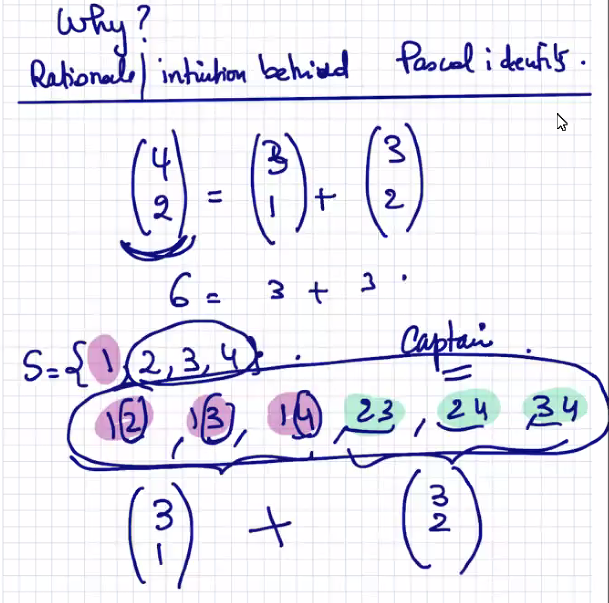 Why?
Rationale / intuition behind Pascal identity.
(4 2) = (3 1) + (3 2)
6 = 3 + 3 .
S = { 1, 2, 3, 4 } . Captain .
12, 13, 14, 23, 24, 34
(3 1) + (3 2)